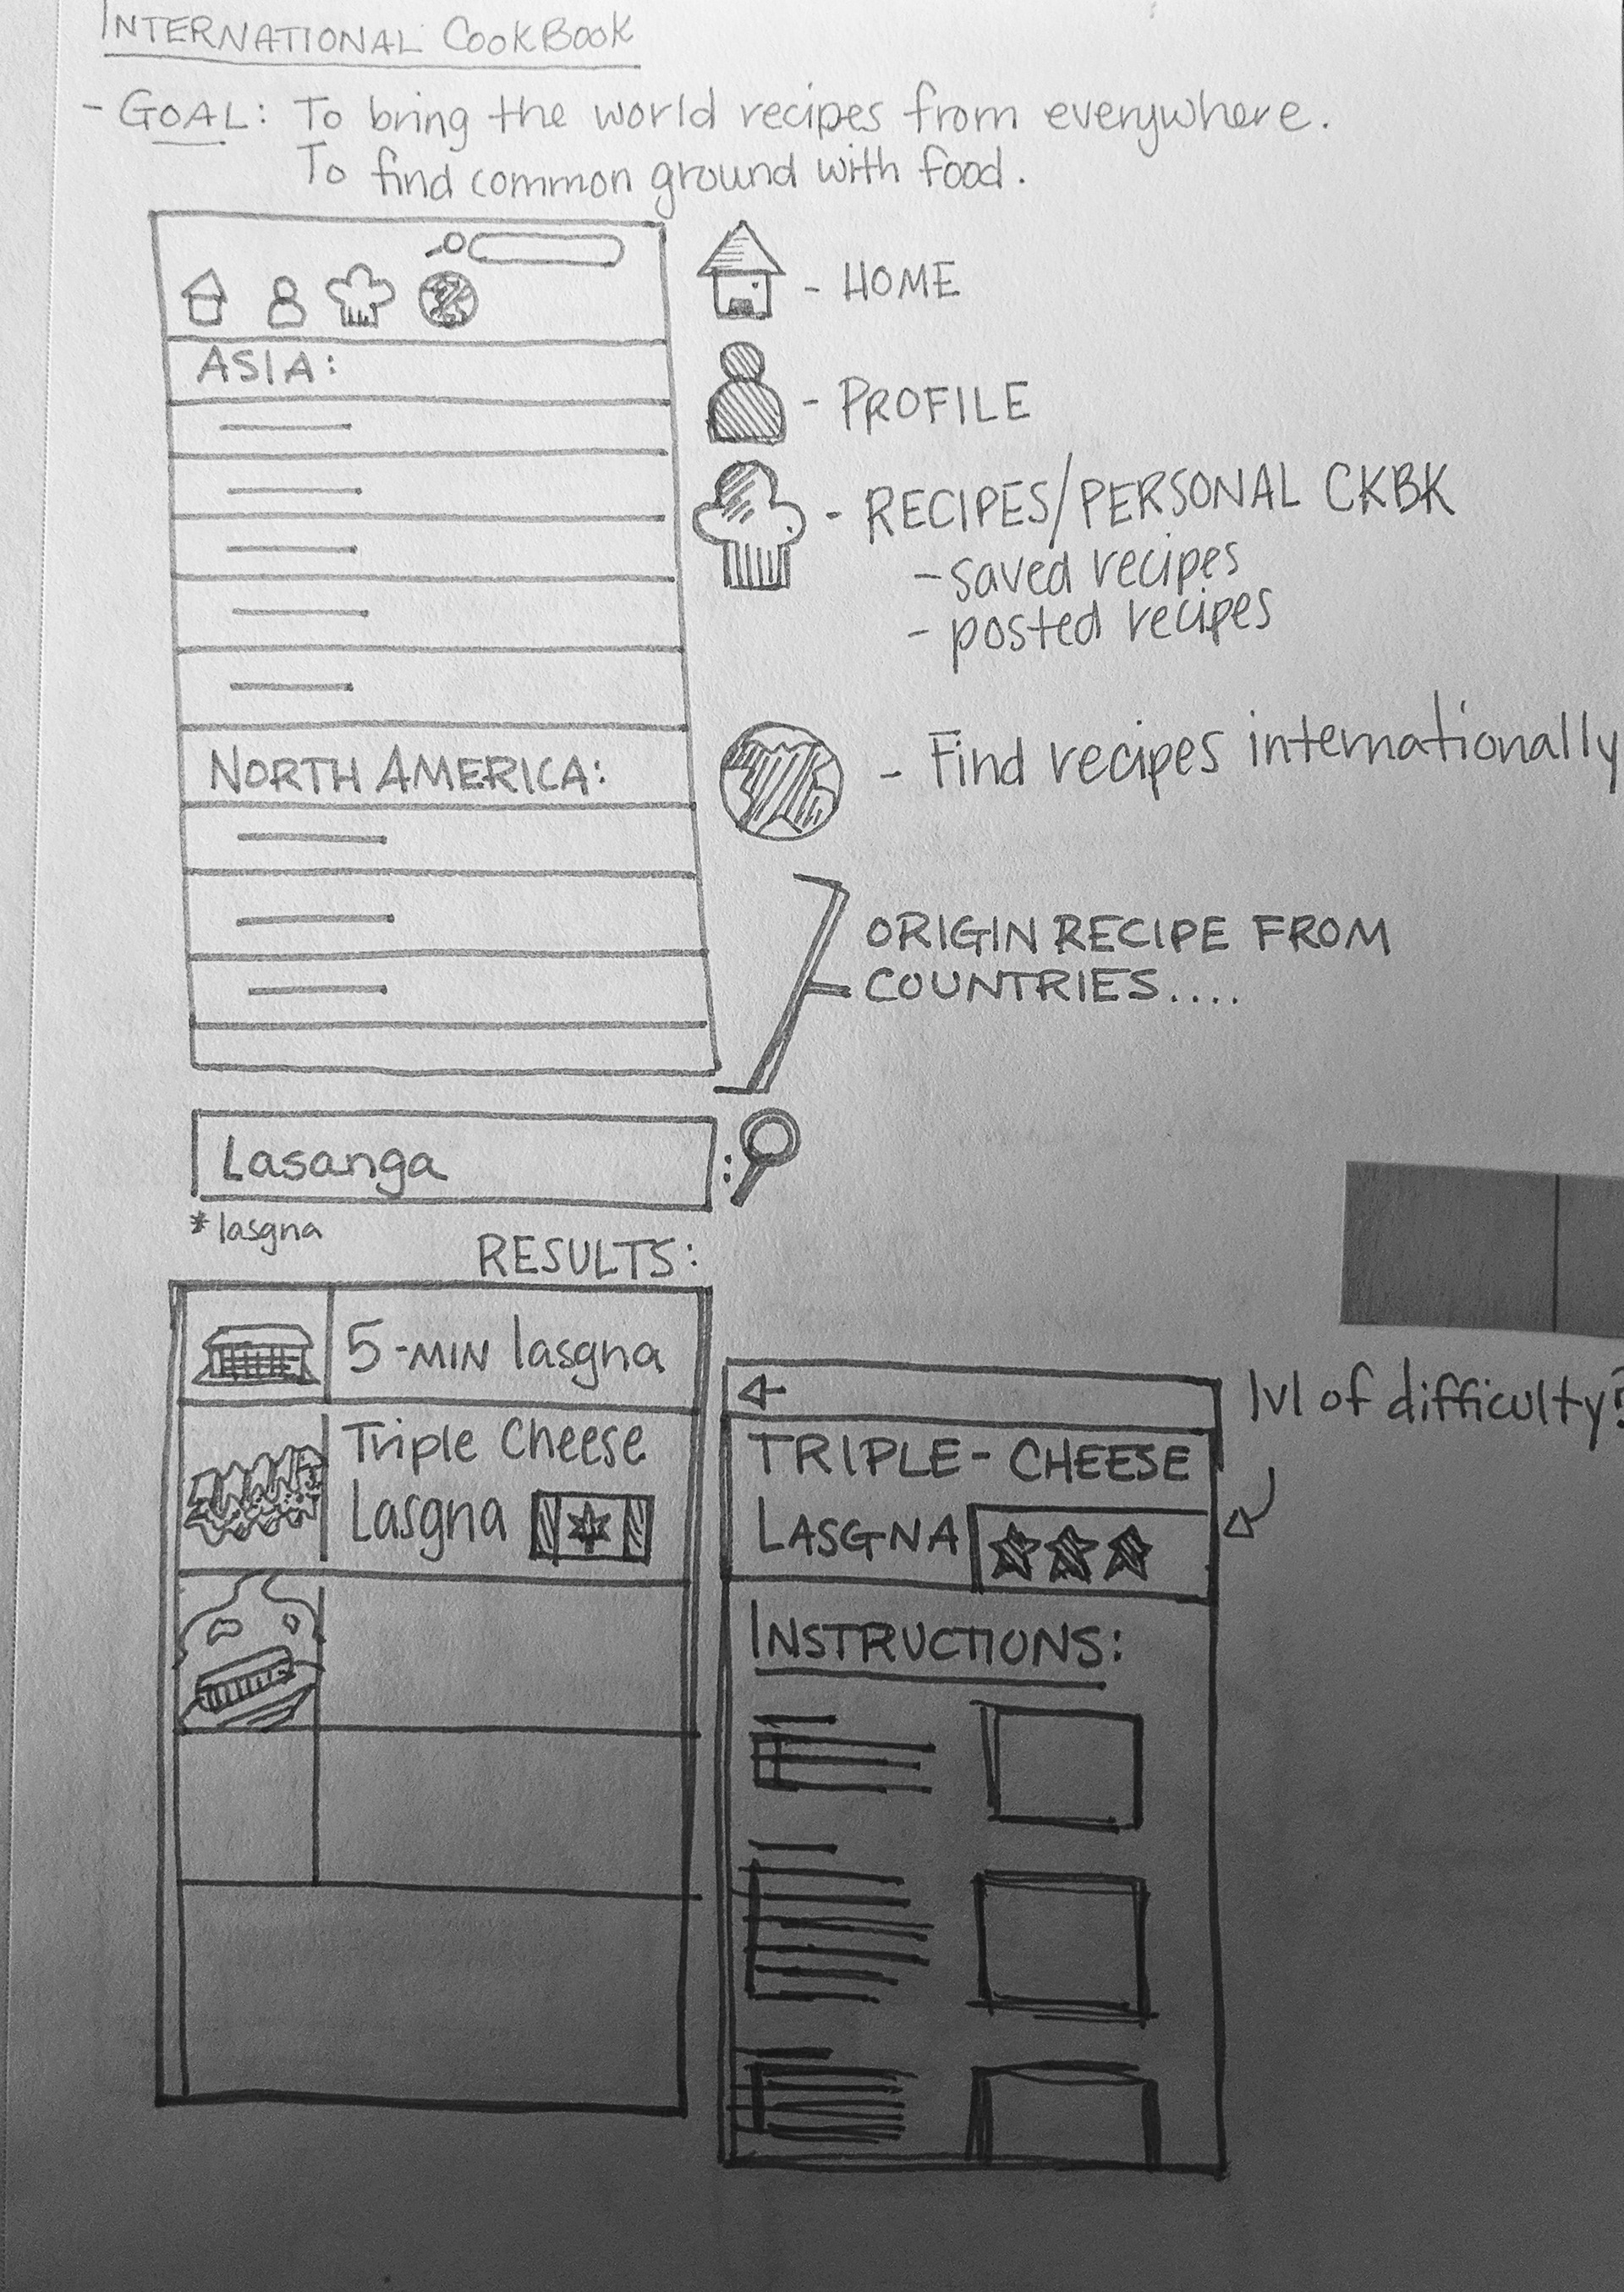 INTERNATIONAL COOKBOOK
- GOAL: To bring the world recipes from everywhere.
To find common ground with food.
- HOME
ASIA:
- PROFILE
- RECIPES/PERSONAL CKBK
- saved recipes
- posted recipes
NORTH AMERICA:
- Find recipes internationally
ORIGIN RECIPE FROM
COUNTRIES....
Lasanga :
* lasgna
RESULTS:
5-MIN lasgna
Triple Cheese
Lasgna
lvl of difficulty?
TRIPLE-CHEESE
LASGNA
INSTRUCTIONS: